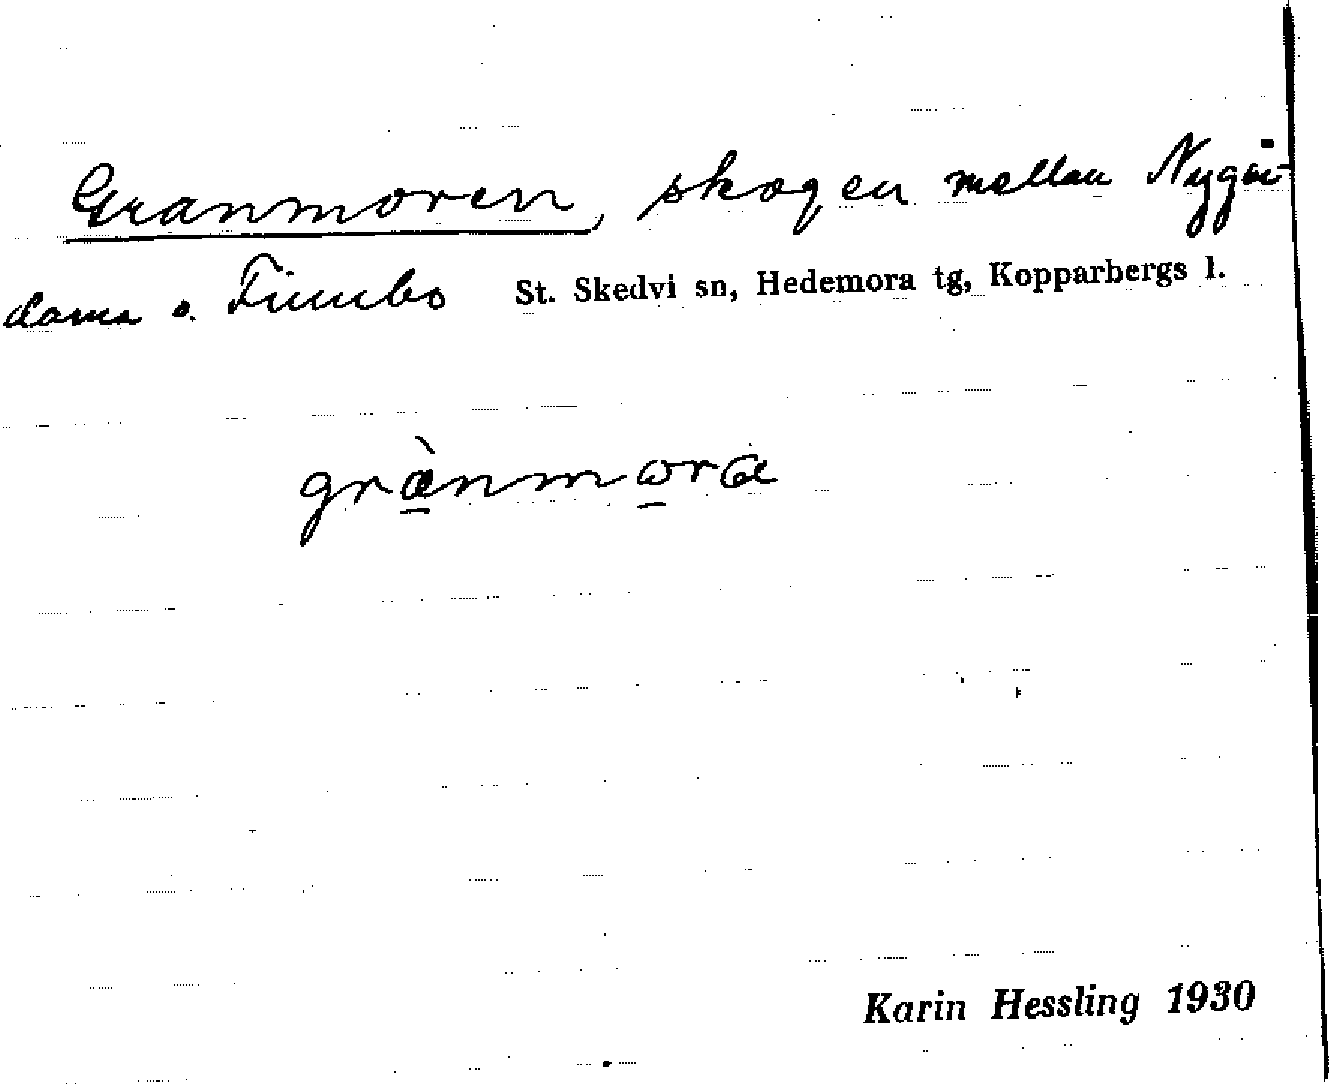 Granmoren, skogen mellan Nygår-
darna o. Finnbo St. Skedvi sn, Hedemora tg, Kopparbergs l.
grànmora
Karin Hessling 1930